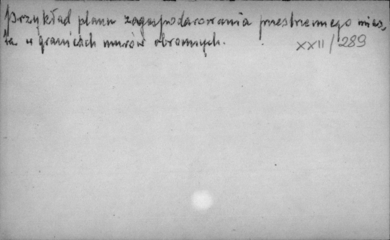 Przykład planu zagospodarowania przestrzennego mias,
ta w granicach murów obronnych.
XXII/289